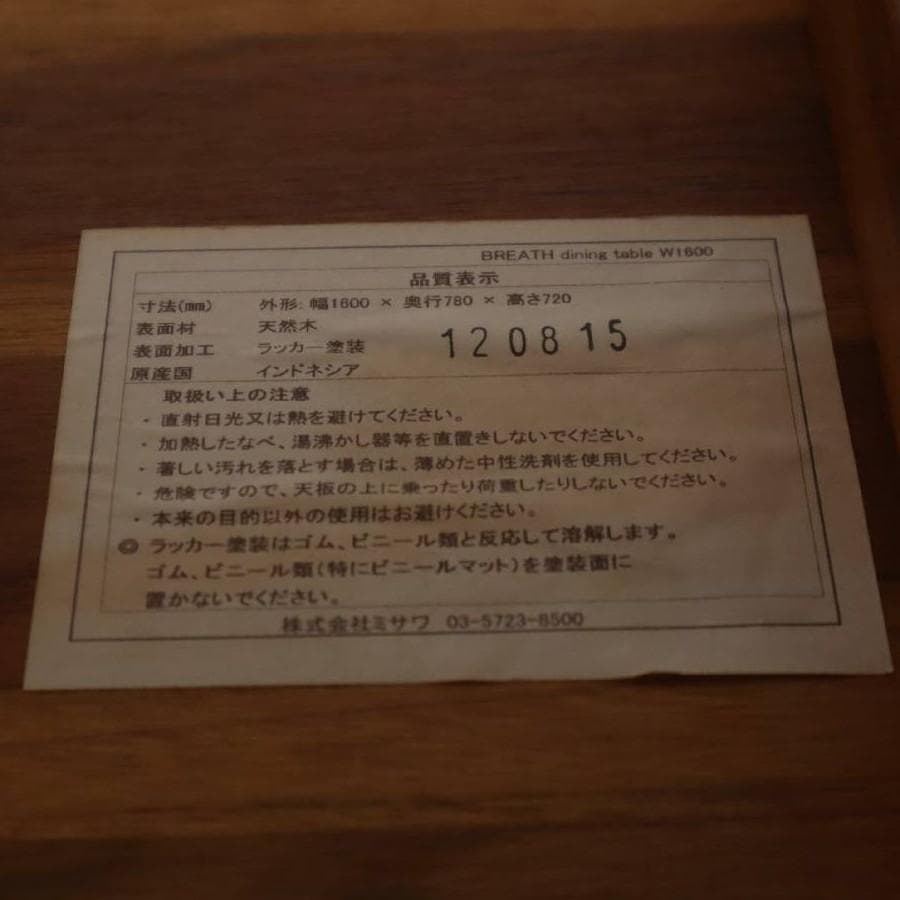 BREATH dining table W1600
品質表示
寸法(mm) 外形: 幅1600 × 奥行780 × 高さ720
表面材 天然木
表面加工 ラッカー塗装
120815
原産国 インドネシア
取扱い上の注意
・ 直射日光又は熱を避けてください。
・ 加熱したなべ、湯沸かし器等を直置きしないでください。
・ 著しい汚れを落とす場合は、薄めた中性洗剤を使用してください。
・ 危険ですので、天板の上に乗ったり荷重したりしないでください。
・ 本来の目的以外の使用はお避けください。
◎ ラッカー塗装はゴム、ビニール類と反応して溶解します。
ゴム、ビニール類(特にビニールマット)を塗装面に
置かないでください。
株式会社ミサワ 03-5723-8500